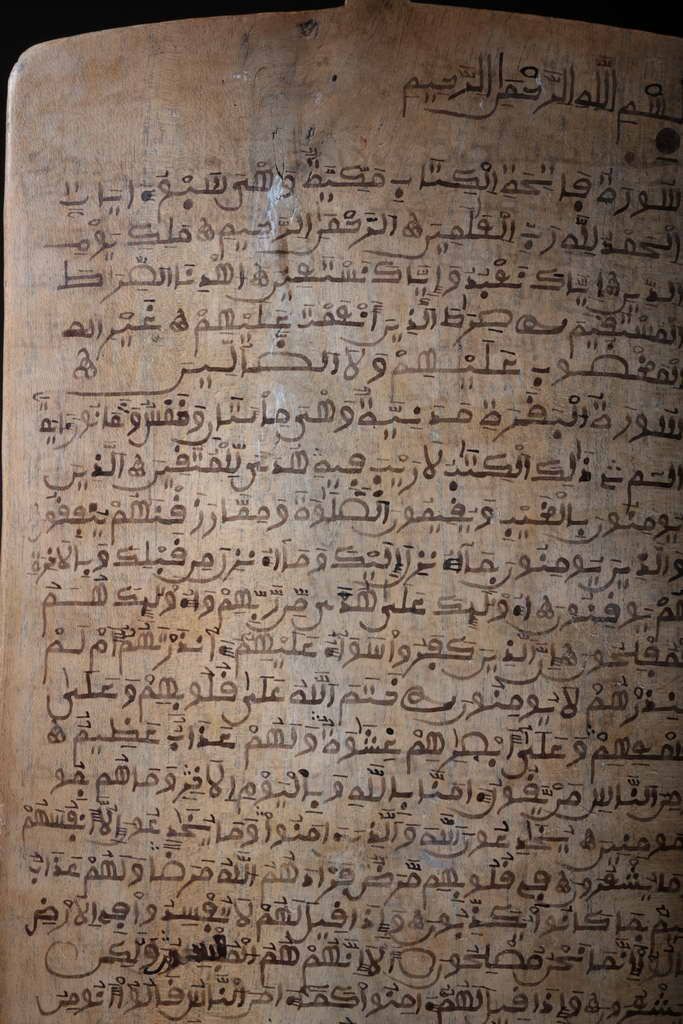 بسم الله الرحمن الرحيم
سورة فاتحة الكتاب مكية وهي سبع ايات
الحمد لله رب العلمين الرحمن الرحيم ملك يوم
الدين اياك نعبد واياك نستعين اهدنا الصراط
المستقيم صراط الذين انعمت عليهم غير الم
المغضوب عليهم ولا الضالين
سورة البقرة مدنية وهي مايتان وخمس وثمانون اية
الم ذلك الكتب لا ريب فيه هدى للمتقين الذين
يومنون بالغيب ويقيمون الصلوة ومما رزقنهم ينفقون
والذين يومنون بما انزل اليك وما انزل من قبلك وبالاخرة
هم يوقنون اوليك على هدى من ربهم واوليك هم
المفلحون ان الذين كفروا سواء عليهم انذرتهم ام لم
تنذرهم لا يومنون ختم الله على قلوبهم وعلى
سمعهم وعلى ابصرهم غشوة ولهم عذاب عظيم
من الناس من يقول امنا بالله وباليوم الاخر وما هم بمو
مومنين يخدعون الله والذين امنوا وما يخدعون الا انفسهم
وما يشعرون في قلوبهم مرض فزادهم الله مرضا ولهم عذاب
اليم بما كانوا يكذبون واذا قيل لهم لا تفسدوا في الارض
قالوا انما نحن مصلحون الا انهم هم ولكن
يشعرون واذا قيل لهم امنوا كما امن الناس قالوا انومن